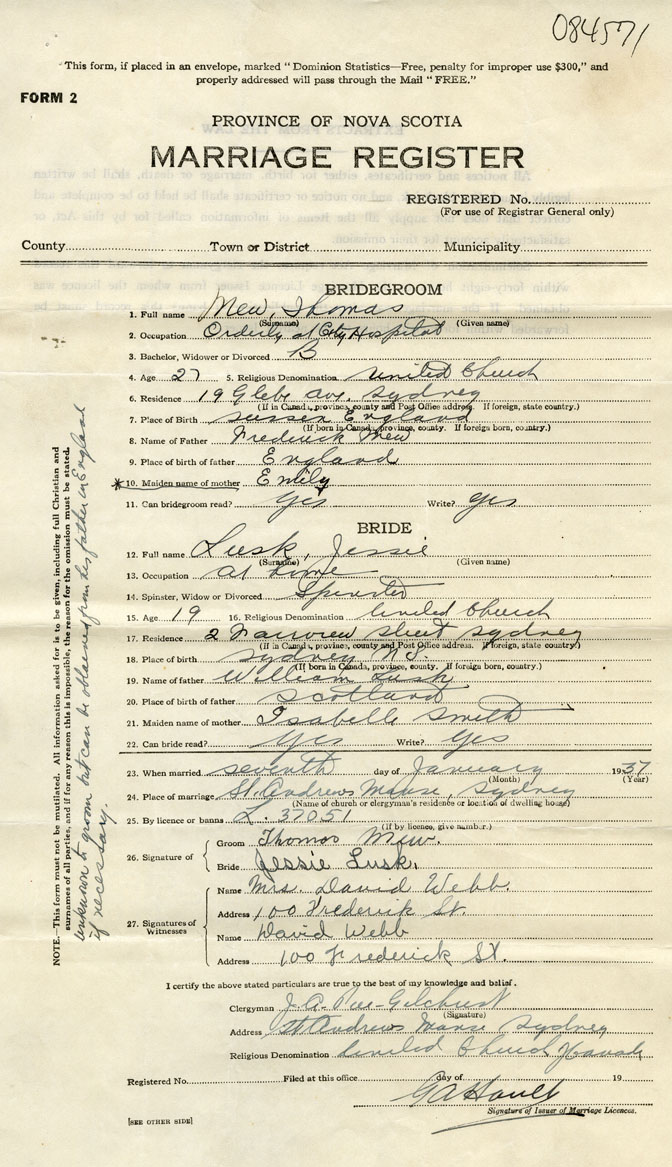 084571
"This form, if placed in an envelope, marked "Dominion Statistics—Free, penalty for improper use $300," and
properly addressed will pass through the Mail "FREE."
FORM 2
PROVINCE OF NOVA SCOTIA
MARRIAGE REGISTER
REGISTERED No.
(For use of Registrar General only)
County Town or District Municipality
BRIDEGROOM
1. Full name Mew, Thomas
(Surname) (Given name)
2. Occupation Orderly at City Hospital
3. Bachelor, Widower or Divorced B
4. Age 27 5. Religious Denomination United Church
6. Residence 19 Glebe Ave. Sydney
(If in Canada, province, county and Post Office address. If foreign, state country.)
7. Place of Birth Sussex England
(If born in Canada, province, county. If foreign born, country.)
8. Name of Father Frederick Mew
9. Place of birth of father England
*10. Maiden name of mother Emily
11. Can bridegroom read? Yes Write? Yes
BRIDE
12. Full name Lusk, Jessie
(Surname) (Given name)
13. Occupation at home
14. Spinster, Widow or Divorced Spinster
15. Age 19 16. Religious Denomination United Church
17. Residence 2 Fairview Street Sydney
(If in Canada, province, county and Post Office address. If foreign, state country.)
18. Place of birth Sydney N.S.
(If born in Canada, province, county. If foreign born, country.)
19. Name of father William Lusk
20. Place of birth of father Scotland
21. Maiden name of mother Isabelle Smith
22. Can bride read? Yes Write? Yes
23. When married seventh day of January 1937
(Month) (Year)
24. Place of marriage St. Andrews Manse, Sydney
(Name of church or clergyman's residence or location of dwelling house)
25. By licence or banns L. 37051
(If by licence, give number.)
26. Signature of
Groom Thomas Mew.
Bride Jessie Lusk.
27. Signatures of Witnesses
Name Mrs. David Webb.
Address 100 Frederick St.
Name David Webb
Address 100 Frederick St.
I certify the above stated particulars are true to the best of my knowledge and belief.
Clergyman J. A. Gilchrist
(Signature)
Address St Andrews Manse Sydney
Religious Denomination United Church Canada
Registered No. Filed at this office day of 19
Signature of Issuer of Marriage Licences.
[SEE OTHER SIDE]
NOTE.—This form must not be mutilated. All information asked for is to be given, including full Christian and
surnames of all parties, and if for any reason this is impossible, the reason for the omission must be stated.
unknown to groom, but can be obtained from his father in England
if necessary.